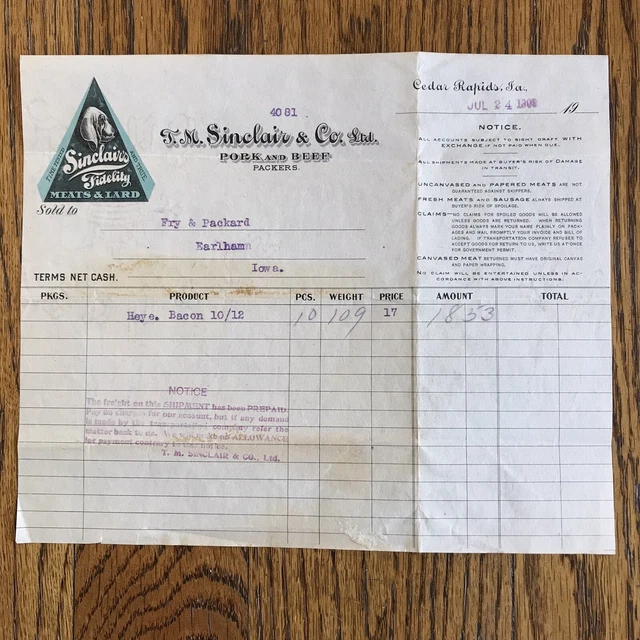 Cedar Rapids, Ia.,
JUL 24 1909 19
4081
T.M. Sinclair & Co. Ltd.
PORK AND BEEF
PACKERS.
Sinclair's
Fidelity
MEATS & LARD
Sold to
Fry & Packard
Earlham
Iowa.
TERMS NET CASH.
NOTICE.
ALL ACCOUNTS SUBJECT TO SIGHT DRAFT WITH
EXCHANGE IF NOT PAID WHEN DUE.
ALL SHIPMENTS MADE AT BUYER'S RISK OF DAMAGE
IN TRANSIT.
UNCANVASED AND PAPERED MEATS ARE NOT
GUARANTEED AGAINST SKIPPERS.
FRESH MEATS AND SAUSAGE ALWAYS SHIPPED AT
BUYER'S RISK OF SPOILAGE.
CLAIMS—NO CLAIMS FOR SPOILED GOODS WILL BE ALLOWED
UNLESS GOODS ARE RETURNED. WHEN RETURNING
GOODS ALWAYS MARK YOUR NAME PLAINLY ON PACK-
AGES AND MAIL PROMPTLY YOUR INVOICE AND BILL OF
LADING. IF TRANSPORTATION COMPANY REFUSES TO
ACCEPT GOODS FOR RETURN TO US, WRITE US AT ONCE
FOR GOVERNMENT PERMIT.
CANVASED MEAT RETURNED MUST HAVE ORIGINAL CANVAS
AND PAPER WRAPPING.
NO CLAIM WILL BE ENTERTAINED UNLESS IN AC-
CORDANCE WITH ABOVE INSTRUCTIONS.
PKGS. PRODUCT PCS. WEIGHT PRICE AMOUNT TOTAL
Heye. Bacon 10/12 10 109 17 1853
NOTICE
The freight on this SHIPMENT has been PREPAID.
Pay no charges for our account, but if any demand
is made by the transportation company refer the
matter back to us. ALLOWANCE
for payment contrary to this notice.
T. M. SINCLAIR & CO., Ltd.